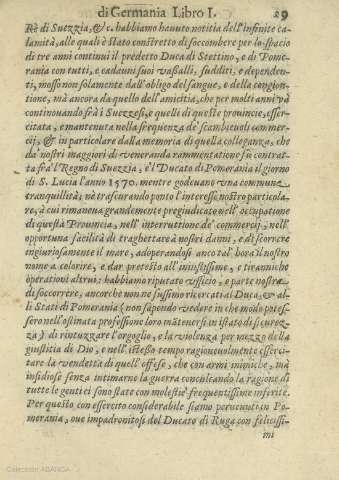 di Germania Libro I. 29
Rè di Suezzia, & c. habbiamo hauuto notitia dell'infinite ca-
lamità, alle quali è stato constretto di soccombere per lo spacio
di tre anni continui il predetto Duca di Stettino, e di Pome-
rania con tutti, e cadauni suoi vassalli, sudditi, e dependen-
ti, mosso non solamente dall'obligo del sangue, e della congion-
tione, mà ancora da quello dell'amicitia, che per molti anni và
continouando frà i Suezzesi, e quelli di queste prouincie, esser-
citata, e mantenuta nella frequenza de' scambieuoli commer-
cij, & in particolare dalla memoria di quella colloganza, che
da' nostri maggiori di veneranda rammentatione fù contrat-
ta frà'l Regno di Suezzia, e'l Ducato di Pomerania il giorno
di S. Lucia l'anno 1570. mentre godeuano vna commune
tranquillità; nè trascurando ponto l'interesse nostro particola-
re, à cui rimaneua grandemente pregiudicato nell'occupatione
di questa Prouincia, nell'interruttione de' commercij, nell'
opportuna facilità di traghettare a nostri danni, e di scorrere
ingiuriosamente il mare, adoperandosi anco tal'hora il nostro
nome a colorire, e dar pretesto all'iniustissime, e tiranniche
operationi altrui: habbiamo riputato vfficio, e parte nostra
di soccorrere, ancorche non ne fussimo ricercati al Duca, & al-
li Stati di Pomerania (non sapendo vedere in che modo potes-
sero nell'ostinata professione loro mātenersi in istato di sicurez-
za) di rintuzzare l'orgoglio, e la violenza per mezzo della
giustitia di Dio, e nell'istesso tempo ragioneuolmente esserci-
tare la vendetta di quell'offese, che con armi inimiche, mà
insidiose senza intimarne la guerra conculcando la ragione di
tutte le genti ci sono state con molestie frequentissime inferite.
Per questo con essercito considerabile siamo peruenuti in Po-
merania, oue impadronitosi del Ducato di Ruga con felicissi-
mi
Colección ABANCA